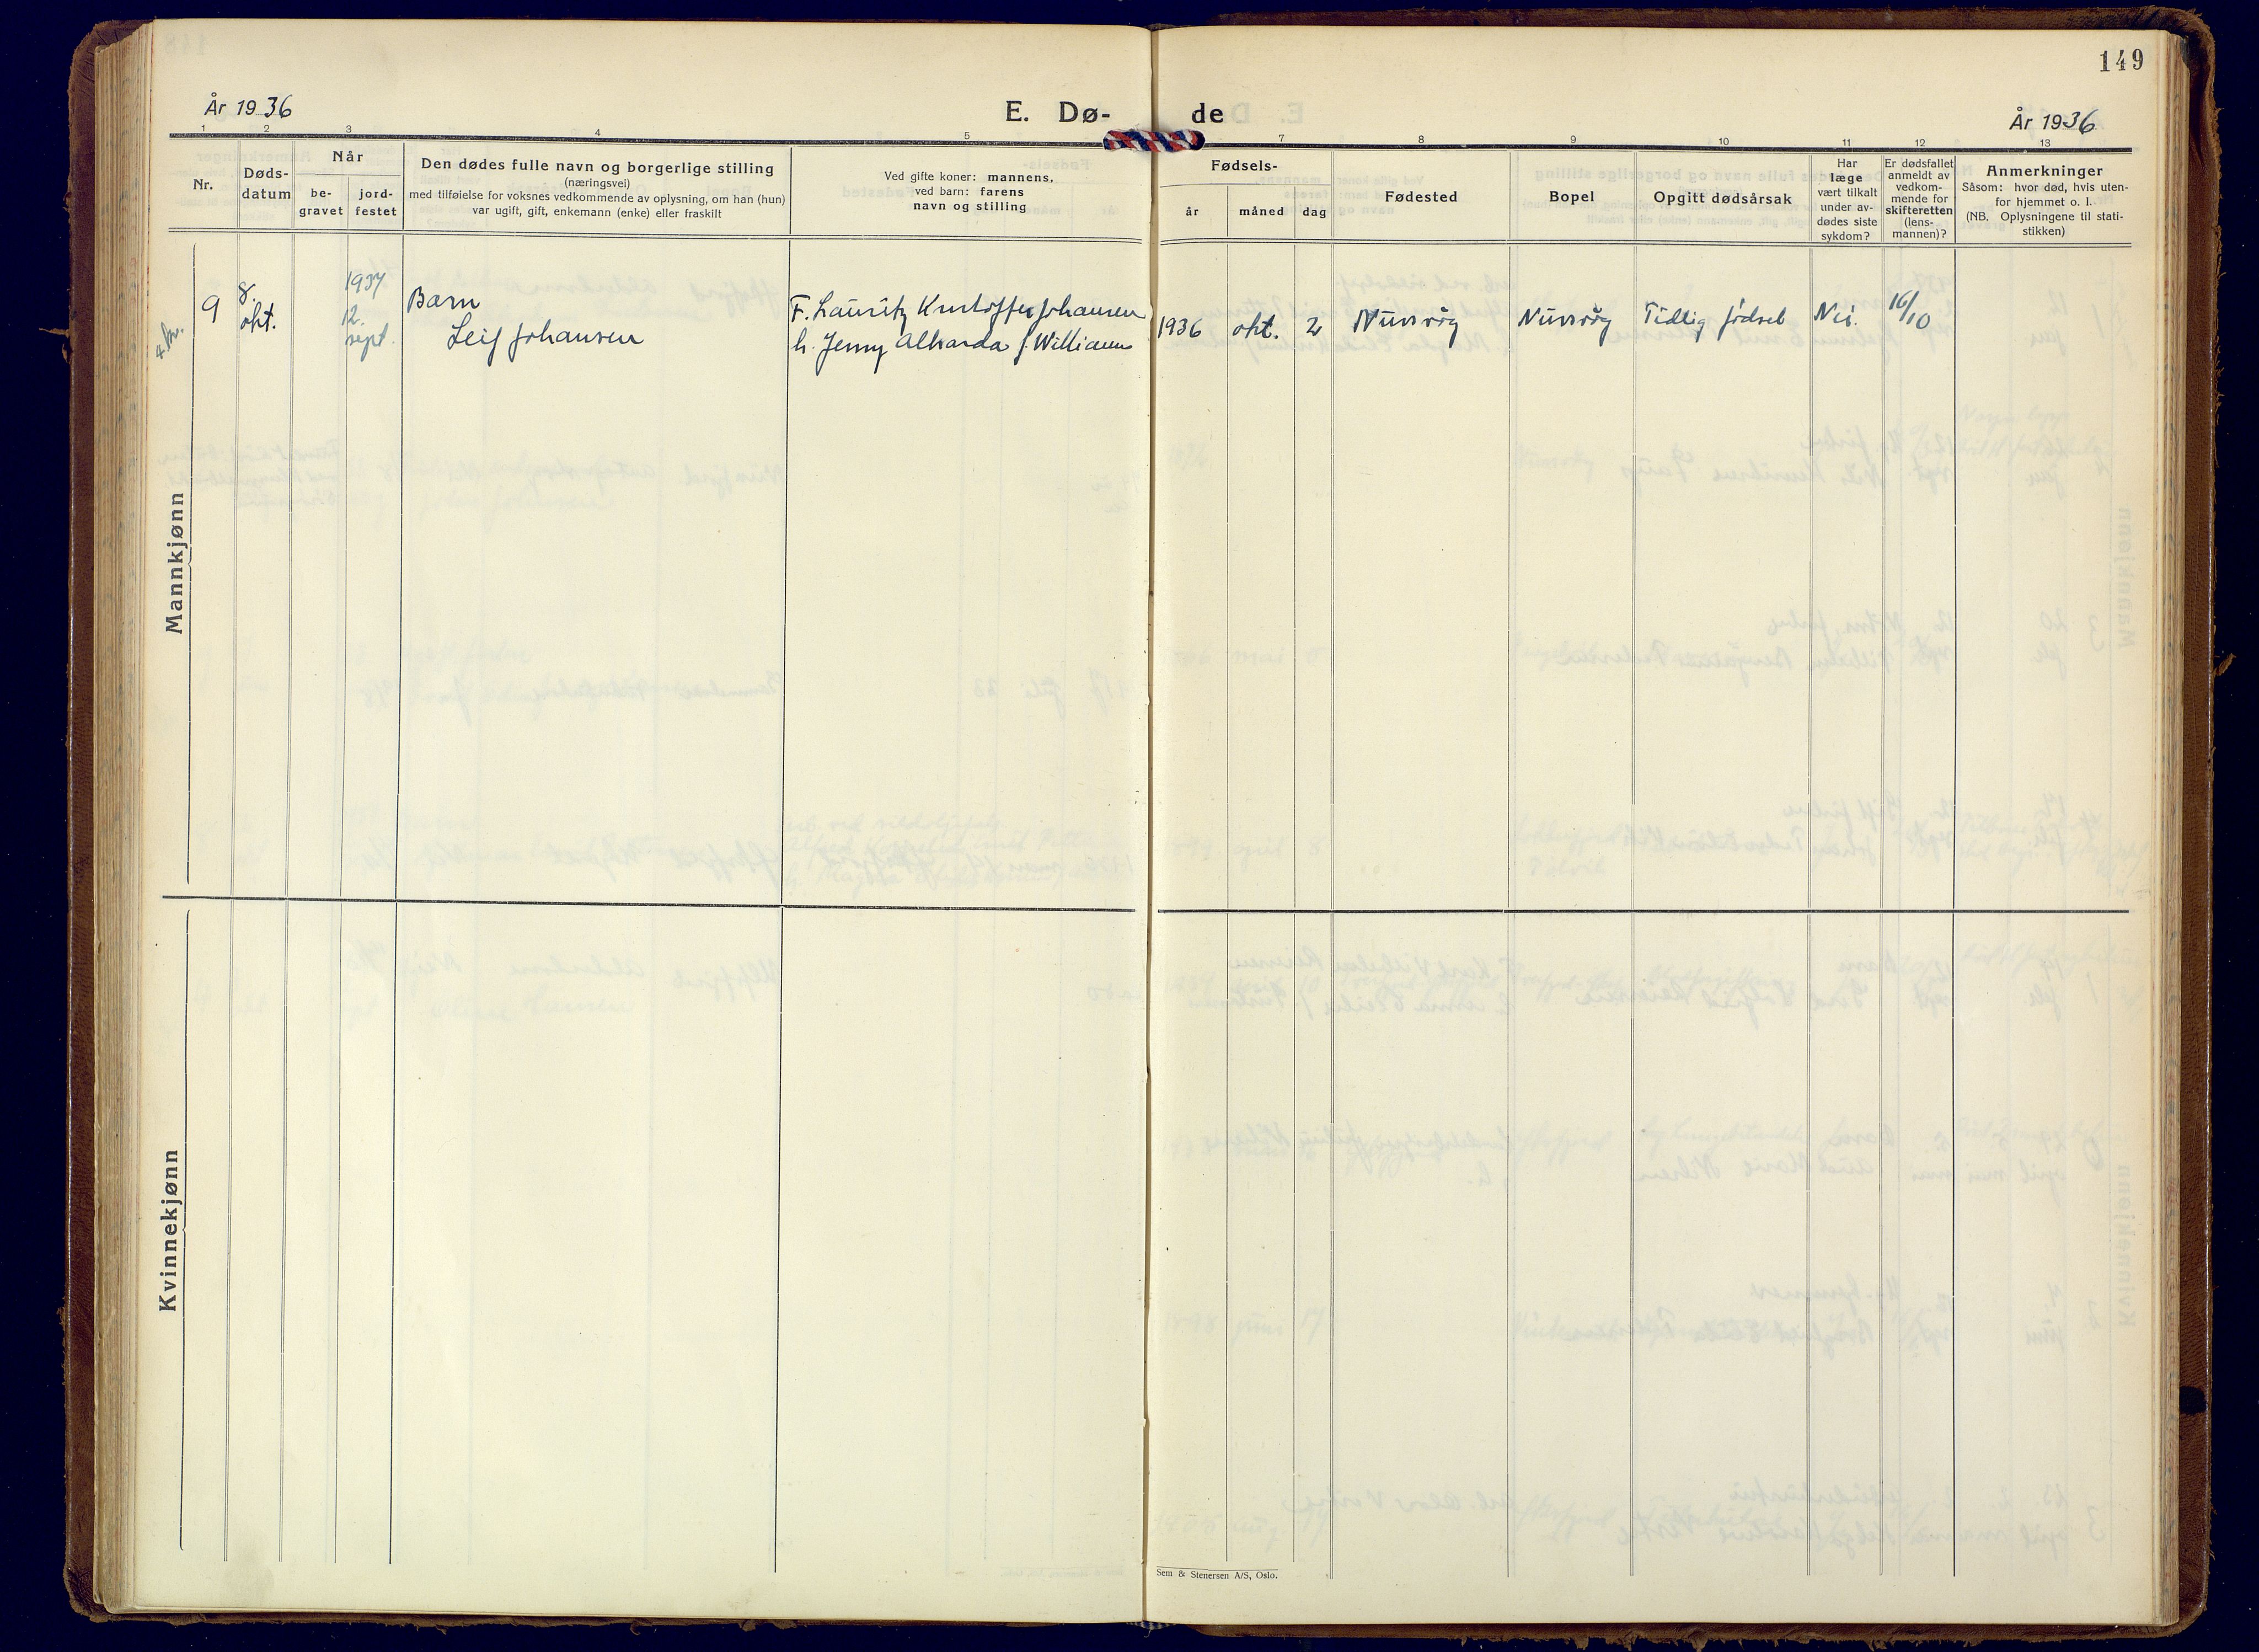 149
År 1936
E. Dø-
de
År 1936
1
2
3
4
5
7
8
9
10
11
12
13
Nr.
Døds-
datum
Når
be-
gravet
jord-
festet
Den dødes fulle navn og borgerlige stilling
(næringsvei)
med tilføielse for voksnes vedkommende av oplysning, om han (hun)
var ugift, gift, enkemann (enke) eller fraskilt
Ved gifte koner: mannens,
ved barn: farens
navn og stilling
Fødsels-
år
måned
dag
Fødested
Bopel
Opgitt dødsårsak
Har
læge
vært tilkalt
under av-
dødes siste
sykdom?
Er dødsfallet
anmeldt av
vedkom-
mende for
skifteretten
(lens-
mannen)?
Anmerkninger
Såsom: hvor død, hvis uten-
for hjemmet o. l.
(NB. Oplysningene til stati-
stikken)
Mannkjønn
9
8.
okt.
1937
12.
sept.
Barn
Leif Johansen
F. Lauritz Kristoffer Johansen
h. Jenny Alvarda f.
1936
okt.
2
Nuvsvåg
Nuvsvåg
Tidlig fødsel
Nei.
16/10
Kvinnekjønn
Sem & Stenersen A/S, Oslo.